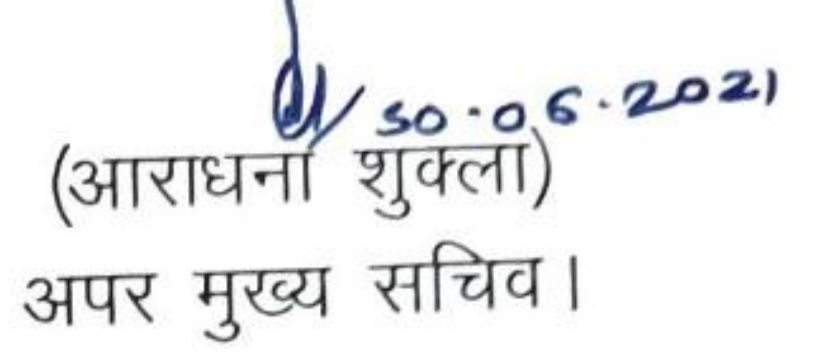 30.06.2021
(आराधना शुक्ला)
अपर मुख्य सचिव।